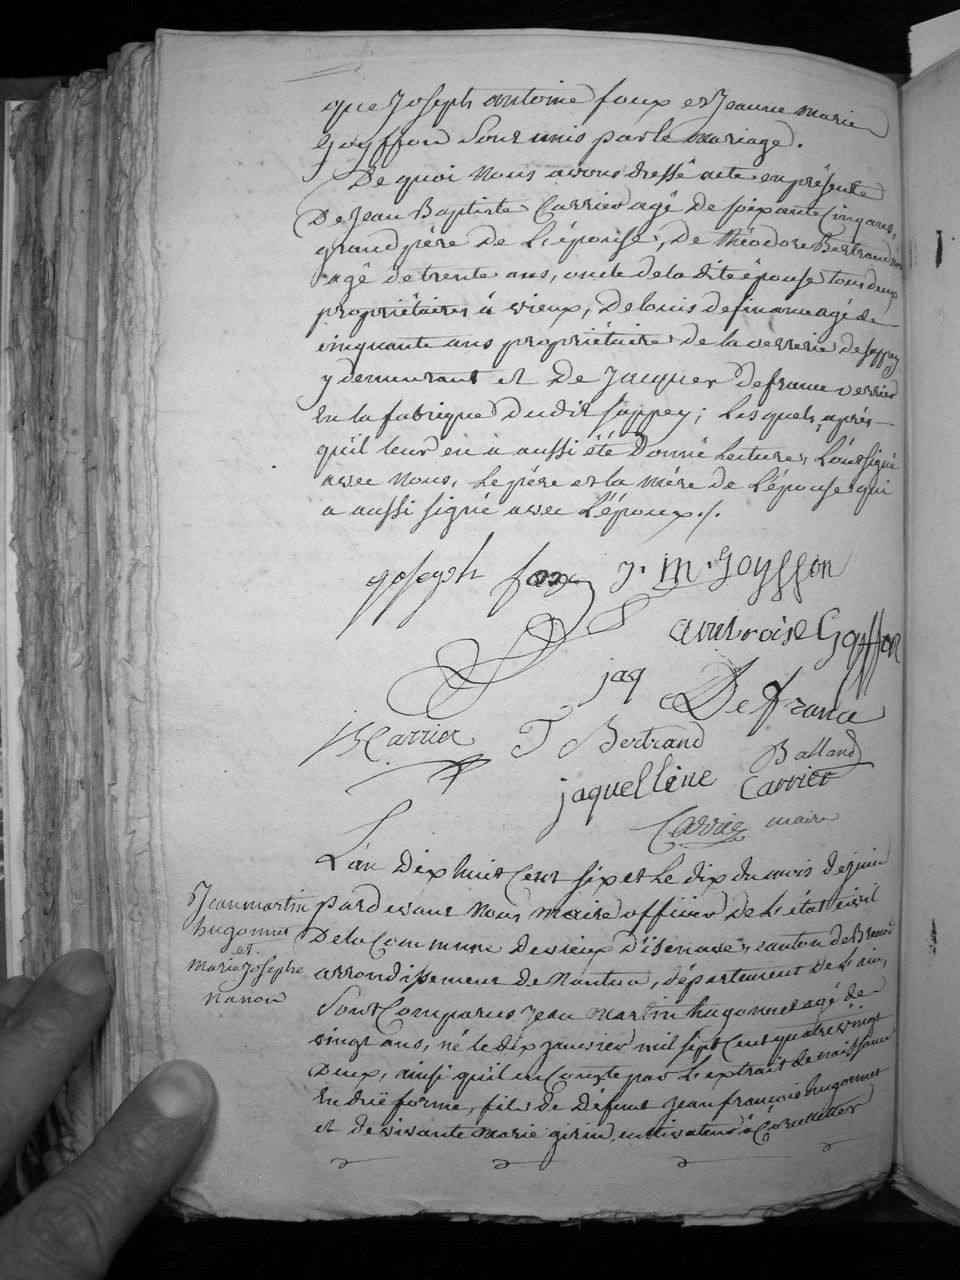 que Joseph antoine foux et Jeanne Marie
Goyffon Sont unis par le mariage.
De quoi Nous avons dressé acte en présence
De Jean Baptiste Carrier agé De soixante Cinq ans,
grand père de L'épouse, De théodore Bertrand
agé de trente ans, oncle de la dite épouse tous deux
propriétaires à vieux, De louis defrance agé de
cinquante ans propriétaire de la verrerie de Sappey
y demeurant et De Jacques Defrance verrier
En la fabrique Dudit Sappey; Lesquels, après
qu'il leur en a aussi été Donné Lecture, L'ont signé
avec Nous, Le père et la mère de L'épouse qui
a aussi signé avec L'époux./.
Joseph foux J. M. Goyffon
ambroise Goyffon
jaq Defrance
JB Carrier T Bertrand Balland
jaquelline Carrier
Carrier maire
L'an Dix huit Cent six et Le dix du mois de juin
pardevant Nous Maire officier de L'état civil
De la Commune de vieux D'isenave, canton de Brenod
arrondissement de Nantua, département de L'ain,
Sont Comparus Jean Martin hugonnet agé de
vingt ans, né le dix janvier mil sept Cent quatre vingt
Deux, ainsi qu'il en Conste par L'extrait de naissance
En düe forme, fils de Défunt Jean françois hugonnet
et de vivante Marie girin, cultivateur à
Jean martin
hugonnet
et
Marie Josephe
Nanon